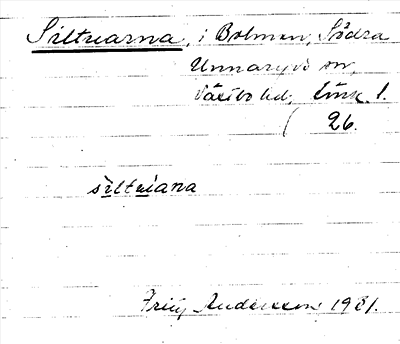 Siltnarna, i Bolmen, Södra
Unnaryds sn,
Västbo hd. länk. 1.
26.
siltniana
Fritz Andersson 1981.